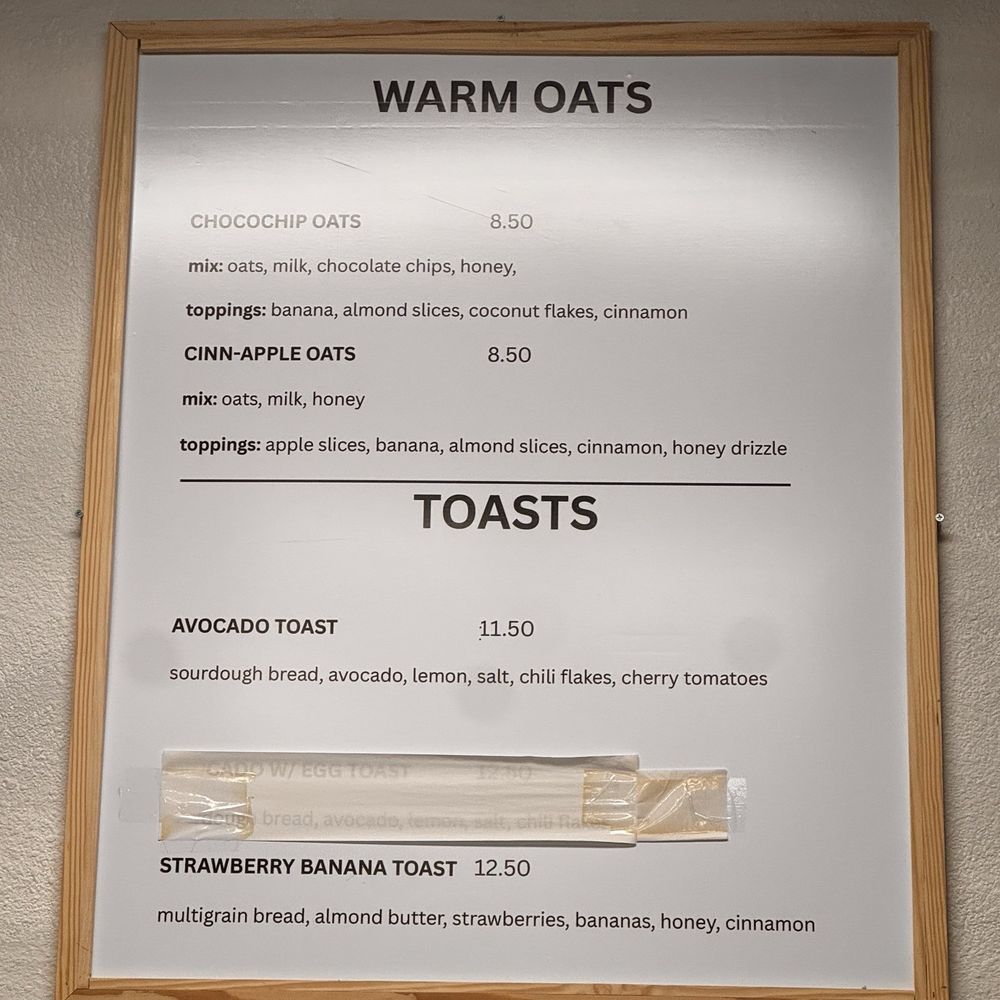 WARM OATS
CHOCOCHIP OATS 8.50
mix: oats, milk, chocolate chips, honey,
toppings: banana, almond slices, coconut flakes, cinnamon
CINN-APPLE OATS 8.50
mix: oats, milk, honey
toppings: apple slices, banana, almond slices, cinnamon, honey drizzle
TOASTS
AVOCADO TOAST 11.50
sourdough bread, avocado, lemon, salt, chili flakes, cherry tomatoes
CADO W/ EGG TOAST 12.50
bread, avocado, lemon, salt, chili
STRAWBERRY BANANA TOAST 12.50
multigrain bread, almond butter, strawberries, bananas, honey, cinnamon